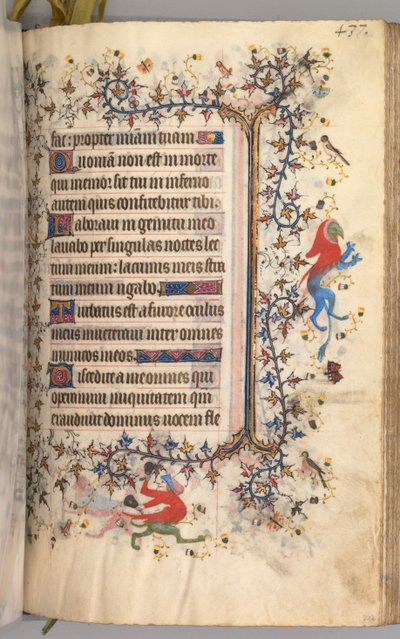 437.
fac: propter miam tuam
Quoniā non est in morte
qui memor sit tui in inferno
autem quis confitebitur tibi:
Laboraui in gemitu meo
lauabo per singulas noctes lec
tum meum: lacrimis meis stra
tum meum rigabo.
Turbatus est a furore oculus
meus inueteraui inter omnes
inimicos meos.
Discedite a me omnes qui
operamini iniquitatem qm
exaudiuit dominus uocem fle